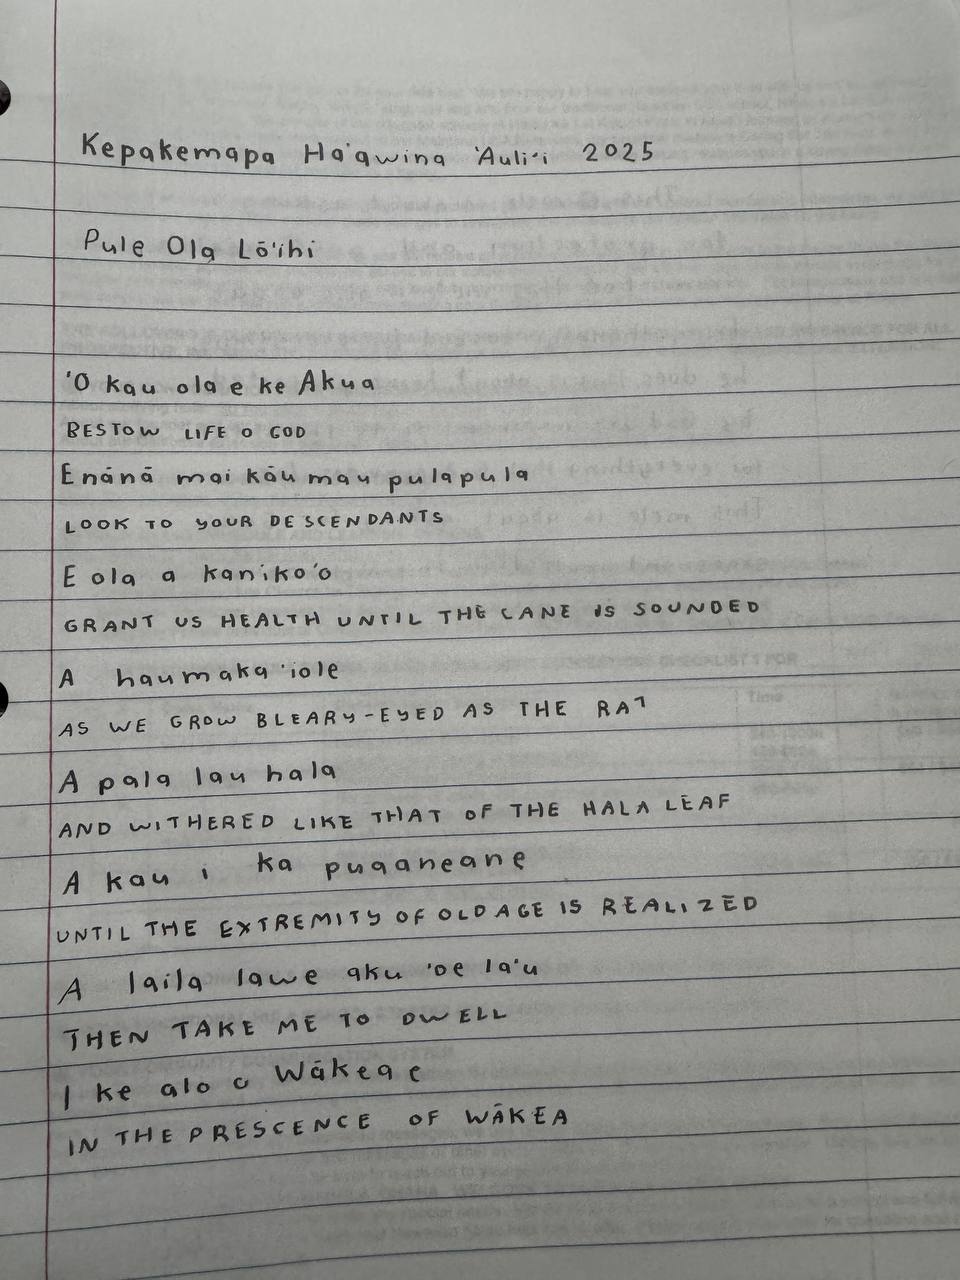 Kepakemapa Ha'awina 'Auli'i 2025
Pule Ola Lō'ihi
'O kau ola e ke Akua
BESTOW LIFE O GOD
E nānā mai kāu mau pulapula
LOOK TO YOUR DESCENDANTS
E ola a kaniko'o
GRANT US HEALTH UNTIL THE CANE IS SOUNDED
A haumaka'iole
AS WE GROW BLEARY-EYED AS THE RAT
A pala lau hala
AND WITHERED LIKE THAT OF THE HALA LEAF
A kau i ka puaaneane
UNTIL THE EXTREMITY OF OLD AGE IS REALIZED
A laila lawe aku 'oe ia'u
THEN TAKE ME TO DWELL
I ke alo o Wākea e
IN THE PRESCENCE OF WĀKEA